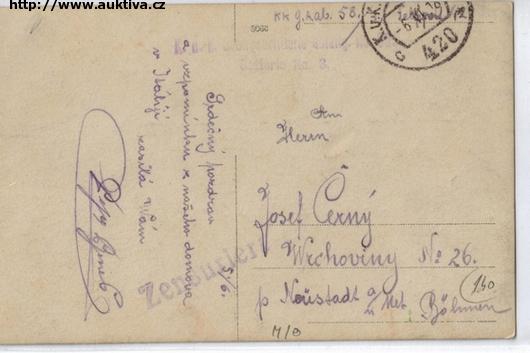 http://www.auktiva.cz
KK g. zab. 56.
K.u.K.
420
Batterie No. 3.
Srdečný pozdrav
a vzpomínku z našeho domova
v Itálii
zasílá Vám
5./6.
Zensuriert
An
Herrn
Josef Černý
Wrchoviny No 26.
p Neustadt a/ Met.
Böhmen
140
M/B